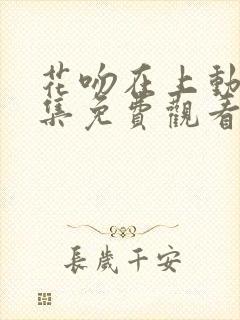 花吻在上動
集免費觀看
長歲千安